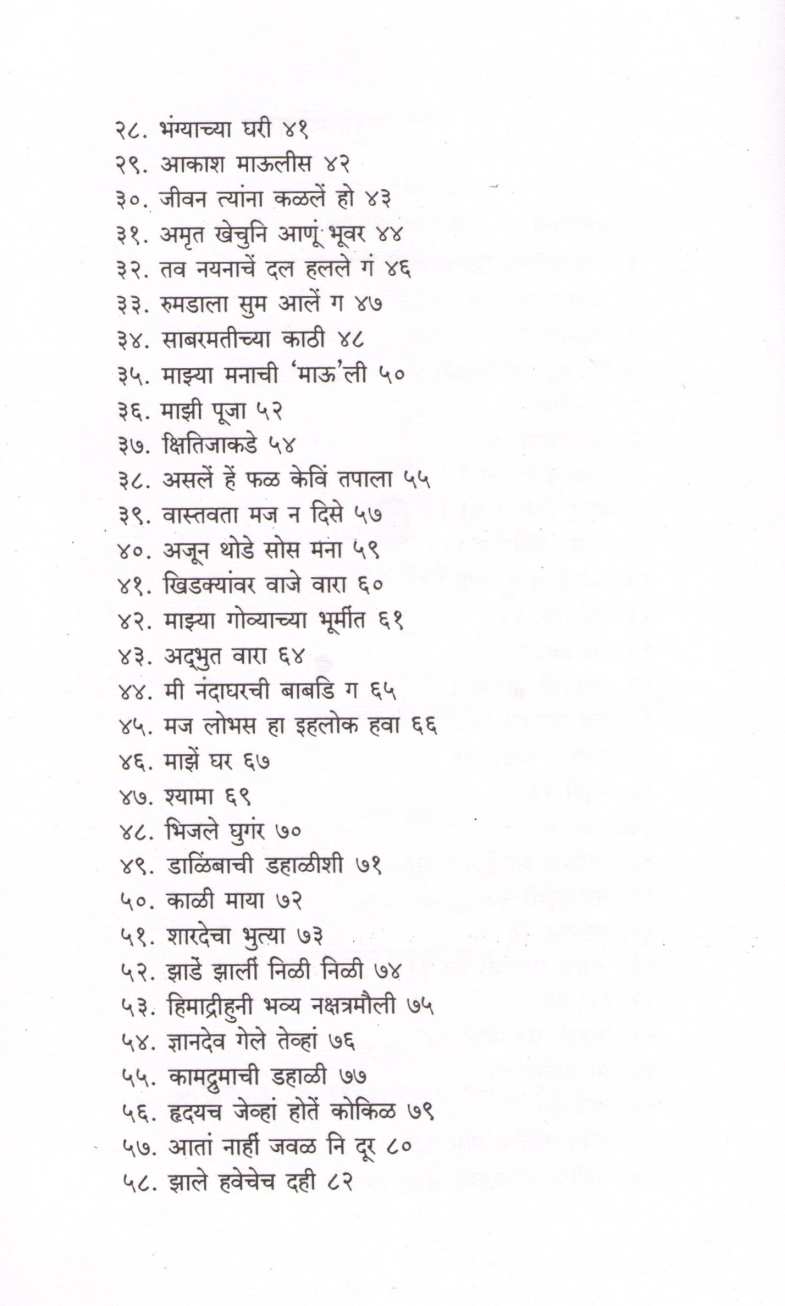 २८. भंग्याच्या घरी ४१
२९. आकाश माऊलीस ४२
३०. जीवन त्यांना कळलें हो ४३
३१. अमृत खेचुनि आणूं भूवर ४४
३२. तव नयनाचें दल हलले गं ४६
३३. रुमडाला सुम आलें ग ४७
३४. साबरमतीच्या काठी ४८
३५. माझ्या मनाची ‘माऊ’ली ५०
३६. माझी पूजा ५२
३७. क्षितिजाकडे ५४
३८. असलें हें फळ केविं तपाला ५५
३९. वास्तवता मज न दिसे ५७
४०. अजून थोडे सोस मना ५९
४१. खिडक्यांवर वाजे वारा ६०
४२. माझ्या गोव्याच्या भूमींत ६१
४३. अद्‌भुत वारा ६४
४४. मी नंदाघरची बाबडि ग ६५
४५. मज लोभस हा इहलोक हवा ६६
४६. माझें घर ६७
४७. श्यामा ६९
४८. भिजले घुगंर ७०
४९. डाळिंबाची डहाळीशी ७१
५०. काळी माया ७२
५१. शारदेचा भुत्या ७३
५२. झाडें झालीं निळी निळी ७४
५३. हिमाद्रीहुनी भव्य नक्षत्रमौली ७५
५४. ज्ञानदेव गेले तेव्हां ७६
५५. कामद्रुमाची डहाळी ७७
५६. हृदयच जेव्हां होतें कोकिळ ७९
५७. आतां नाहीं जवळ नि दूर ८०
५८. झाले हवेचेच दही ८२